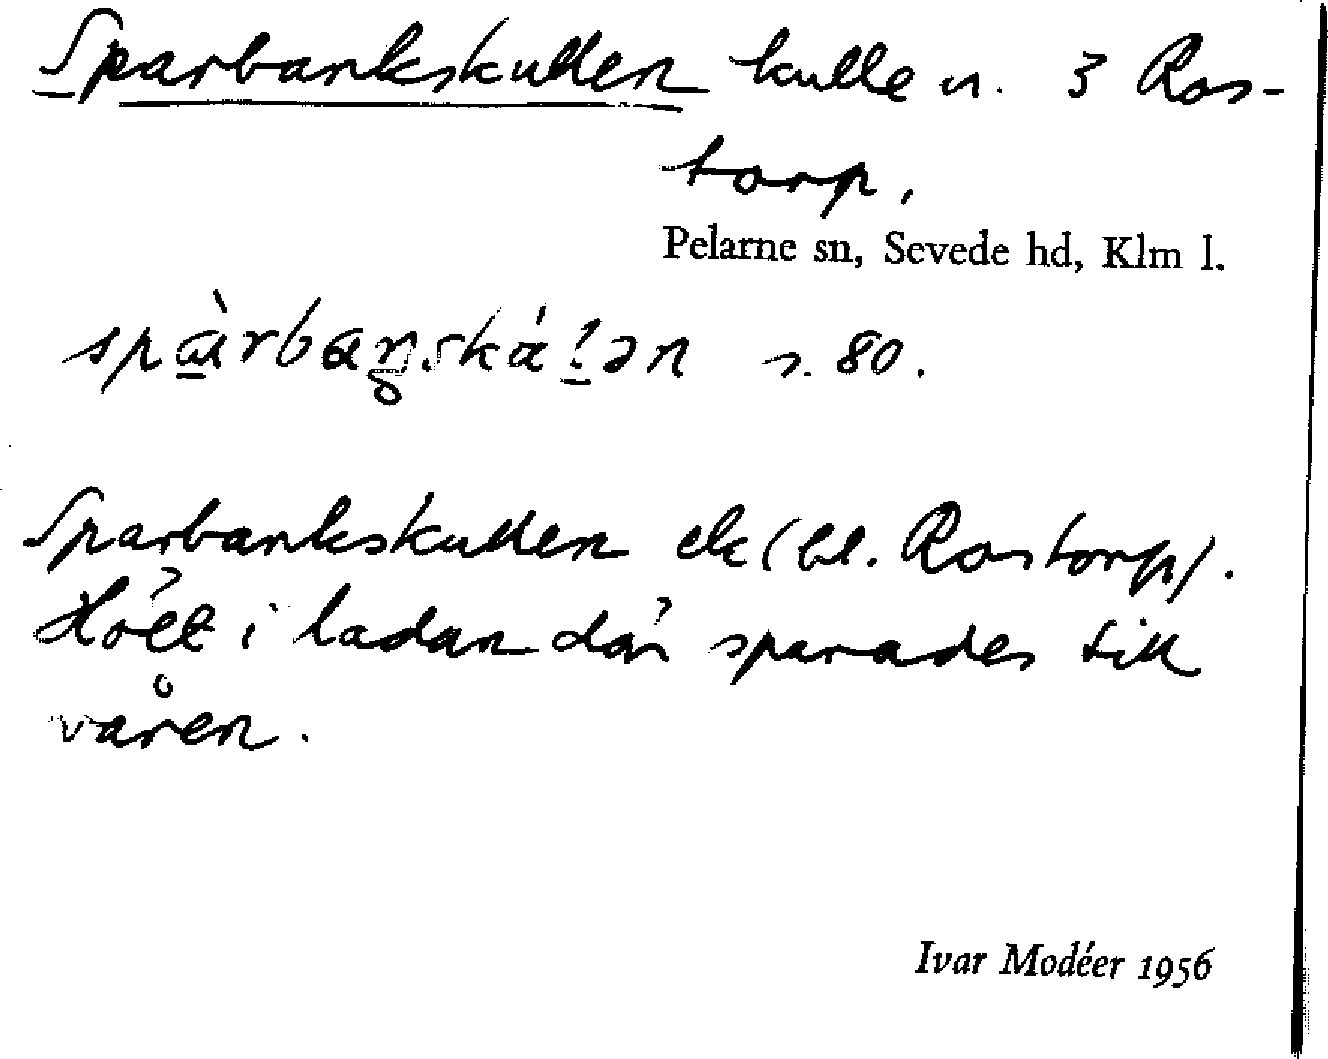 Sparbankskullen kulle n. 3 Ros-
torp,
Pelarne sn, Sevede hd, Klm l.
s. 80.
Sparbankskullen ek (bl. Rostorp).
Höet i ladan där sparades till
våren.
Ivar Modéer 1956